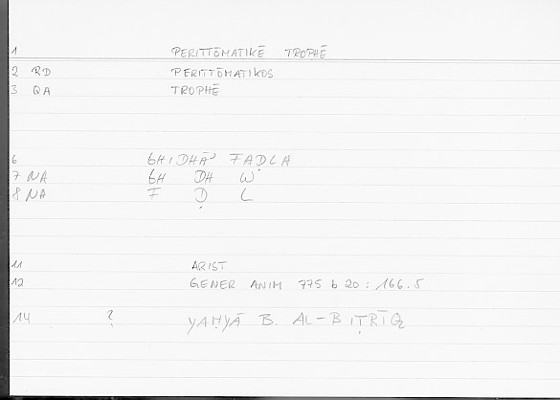 1 PERITTŌMATIKĒ TROPHĒ
2 RD PERITTŌMATIKOS
3 QA TROPHĒ
6 GHIDHĀʾ FAḌLA
7 NA GH DH W
8 NA F Ḍ L
11 ARIST
12 GENER ANIM 775 b 20 : 166.5
14 ? YAḤYĀ B. AL-BIṬRĪQ